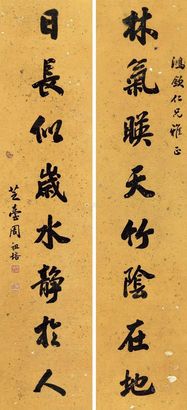 鴻欽仁兄雅正
林氣暎天竹陰在地
日長似歲水靜於人
芝臺周祖培